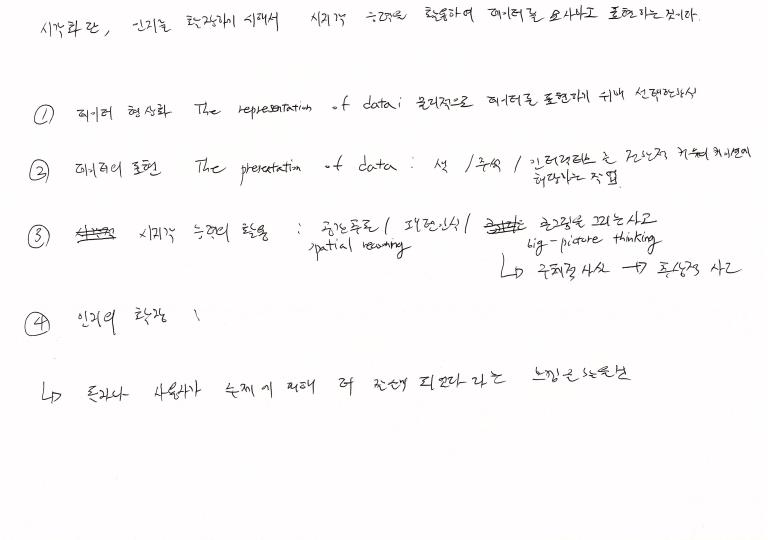 시각화란, 인지를 확장하기 위해서 시지각 능력을 활용하여 데이터를 묘사하고 표현하는 것이다.
① 데이터 형상화 The representation of data : 물리적으로 데이터를 표현하기 위해 선택한 방식
② 데이터의 표현 The presentation of data : 색 / 주석 / 인터랙티브 등 전반적 커뮤니케이션에
해당하는 작업.
③ 시지각 능력의 활용 : 공간추론 / 패턴인식 / 큰그림을 그리는 사고
spatial reasoning big-picture thinking
↳ 구체적 사실 → 추상적 사고
④ 인지의 확장 :
↳ 독자나 사용자가 주제에 대해 더 되었다 라는 느낌을